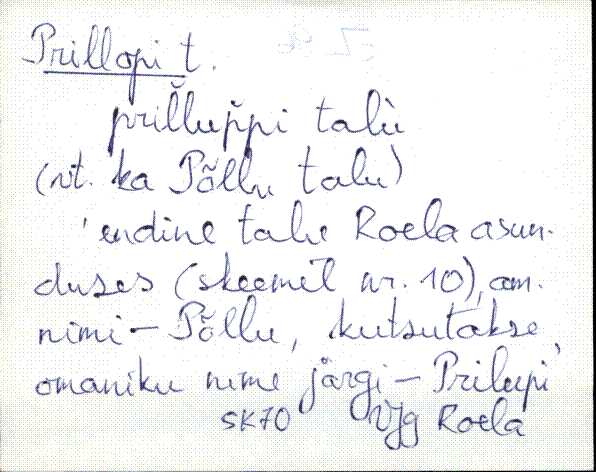 Prillopi t.
prilluppi talù
(vt. ka Põllu talu)
'endine talu Roela asun-
duses (skeemil nr. 10), am.
nimi - Põllu, kutsutakse
omaniku nime järgi - Prilupi'
SK70 VJg Roela